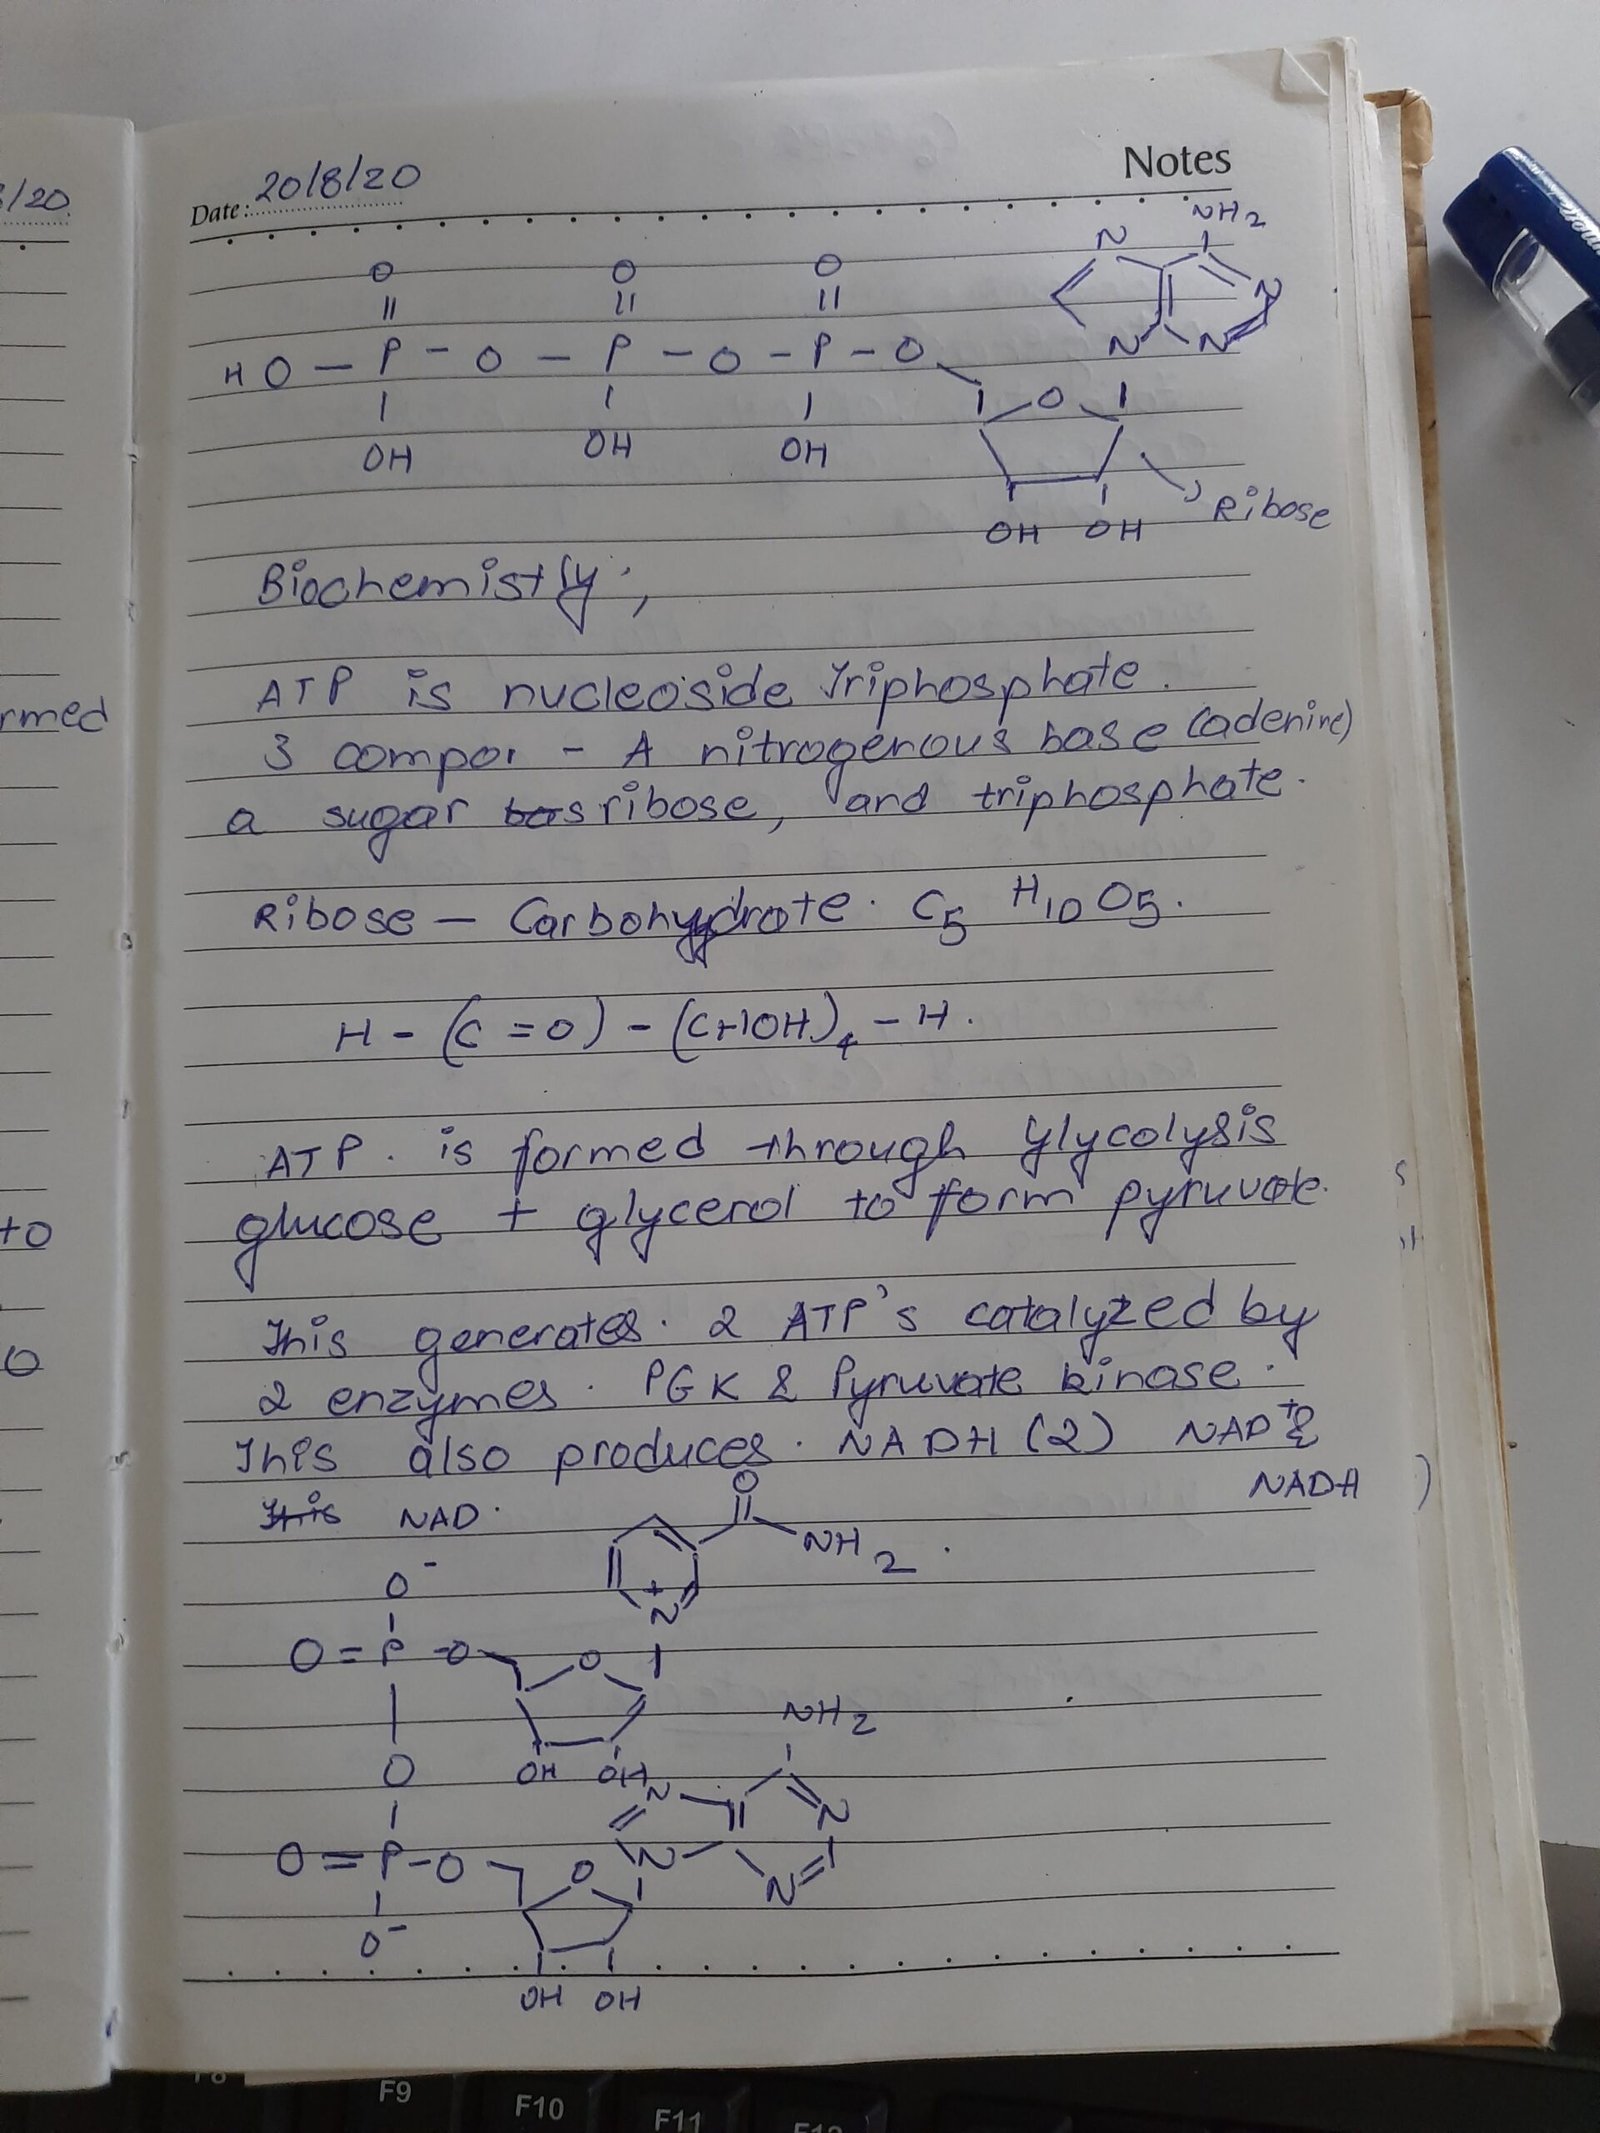 8/20
rmed
to
Notes
Date: 20/8/20
NH2
N
N
N
N
O O O
HO - P - O - P - O - P - O
OH OH OH
O
OH OH
Ribose
Biochemistry;
ATP is nucleoside Triphosphate.
3 compor - A nitrogenous base (adenine)
a sugar bas ribose, and triphosphate.
Ribose - Carbohydrate. C5 H10 O5.
H - (C = O) - (CHOH)4 - H.
ATP. is formed through Glycolysis
glucose + glycerol to form pyruvate.
This generates. 2 ATP's catalyzed by
2 enzymes. PGK & Pyruvate kinase.
This also produces. NADH (2) NAD+ &
NADH
This NAD.
O
NH2.
+
N
O-
O = P - O
O
OH OH
O
NH2
N
N
N
N
O = P - O
O
O-
OH OH
F8
F9
F10
F11
F12